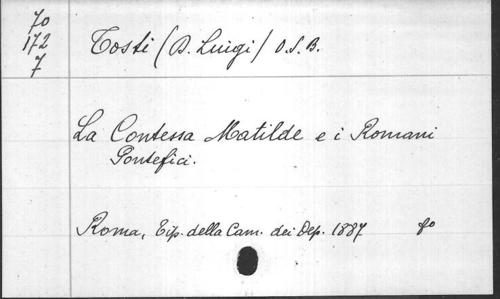 70
172
7
Tosti (D. Luigi) O.S.B.
La Contessa Matilde e i Romani
Pontefici.
Roma, Tip. della Cam. dei Dep. 1887 fo